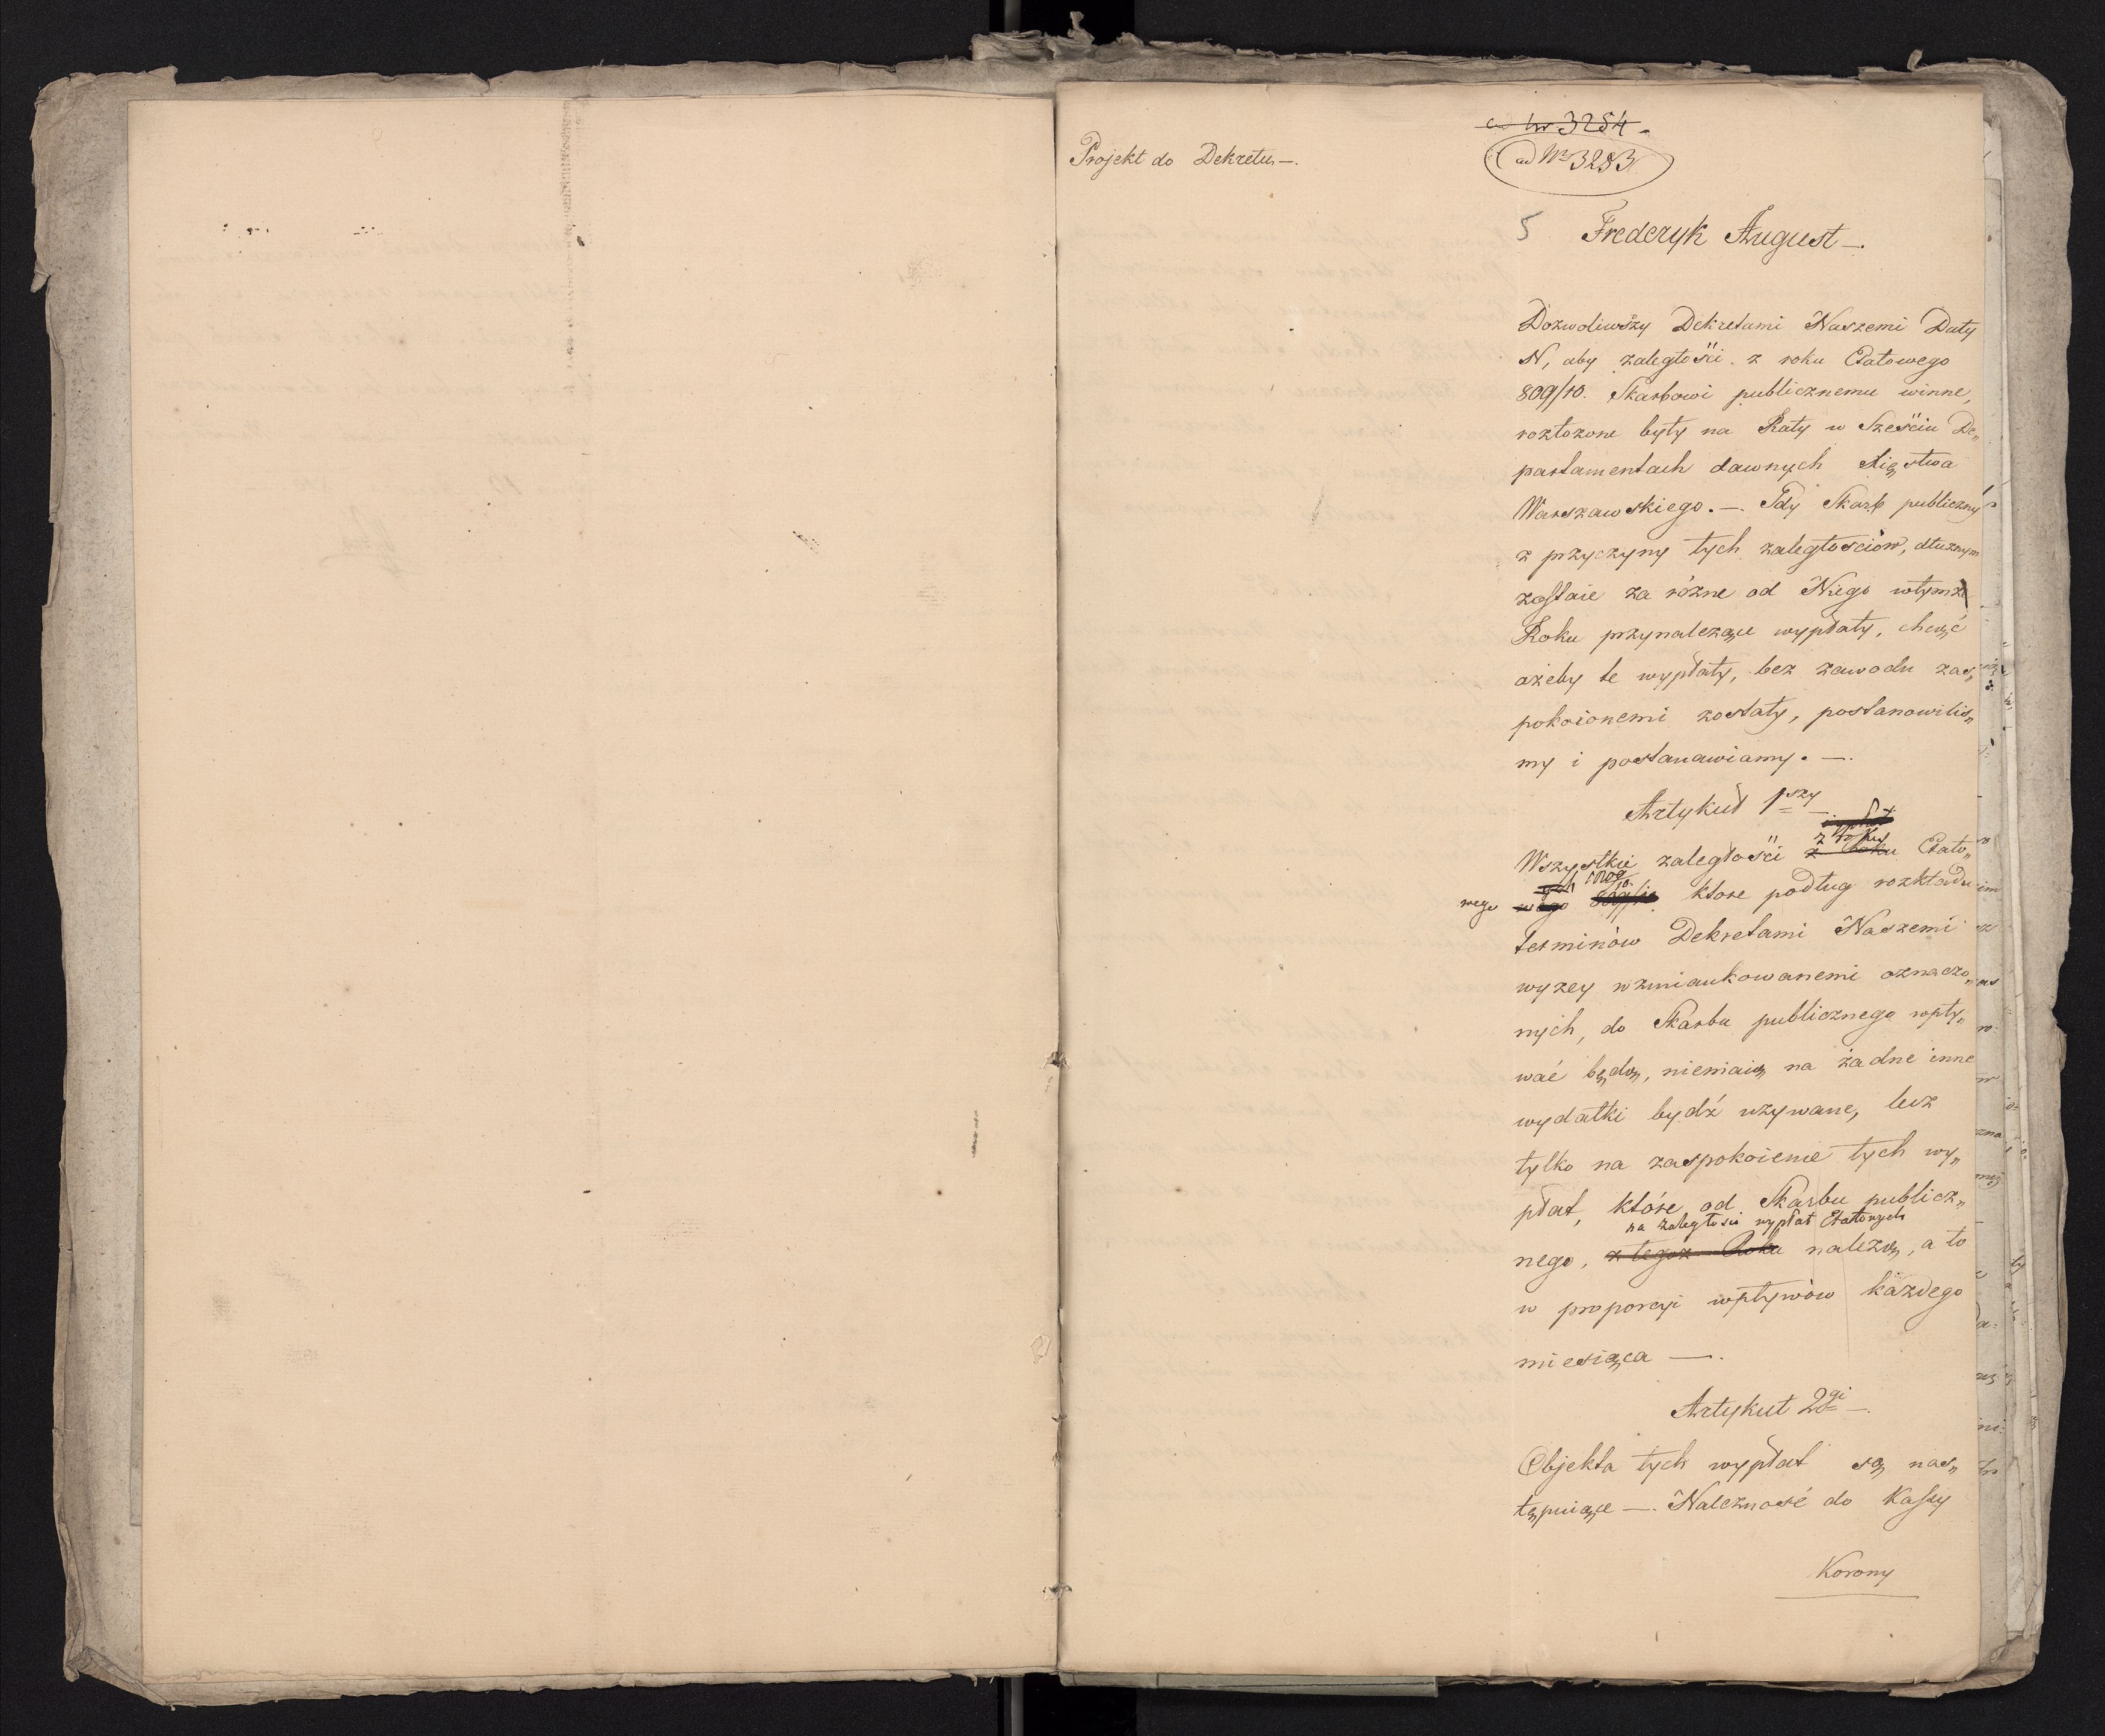 ad Nr 3254.
Projekt do Dekretu —.
ad Nr 3253
5 Frederyk August —.
Dozwoliwszy Dekretami Naszemi Daty
N, aby zaległości z roku Etatowego
809/10. Skarbowi publicznemu winne,
rozłożone były na Raty w Sześciu De„
partamentach dawnych Xięstwa
Warszawskiego. —. Gdy Skarb publiczny
z przyczyny tych zaległosciów, dłużnym
zostaie za różne od Niego wtymże
Roku przynalezące wypłaty, chcąć
ażeby te wypłaty, bez zawodu zas„
pokoionemi zostały, postanowilis„
my i postanawiamy. —.
Artykuł 1szy
z Roku
Wszystkie zaległości z Roku Etato„
1809/10
wego wego 809/10 ktore podług rozkładu
terminów Dekretami Naszemi
wyzey wzmiankowanemi oznaczo„
nych, do Skarbu publicznego wpły„
wać będą, niemaią na żadne inne
wydatki bydź uzywane, lecz
tylko na zaspokoienie tych wy„
płat, które od Skarbu publicz„
na zaległości wypłat Etatowych
nego, z tegoż Roku należą, a to
w proporcyi wpływów każdego
miesiąca —.
Artykuł 2gi —.
Objekta tych wypłat są nas„
tępuiące —. Nalezność do Kassy
Korony